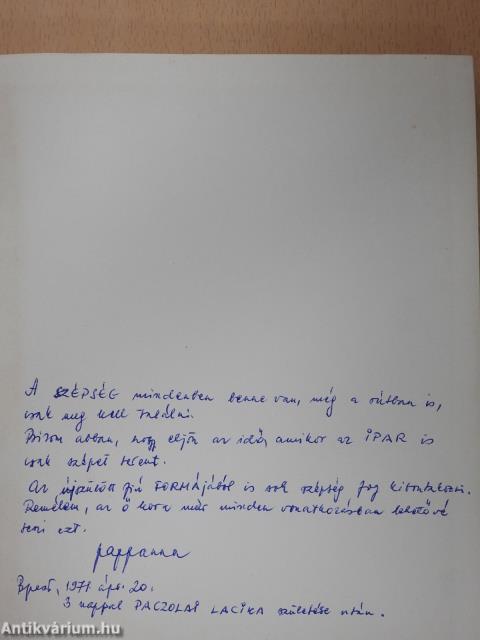 A SZÉPSÉG mindenben benne van, még a rútban is,
csak meg kell találni.
Bízom abban, hogy eljön az idő, amikor az IPAR is
csak szépet teremt.
Az újszülött fiú FORMÁjából is sok szépség fog kibontakozni.
Remélem, az ő kora már minden vonatkozásban lehetővé
teszi ezt.
pappanna
Bpest, 1971 ápr. 20.
3 nappal PACZOLAI LACIKA születése után.
Antikvárium.hu